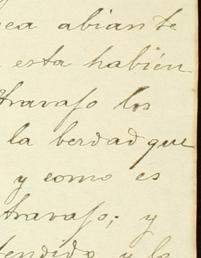 ea abiante
esta habien
travajo los
la berdad que
y como es
travajo; y
tendido y lo